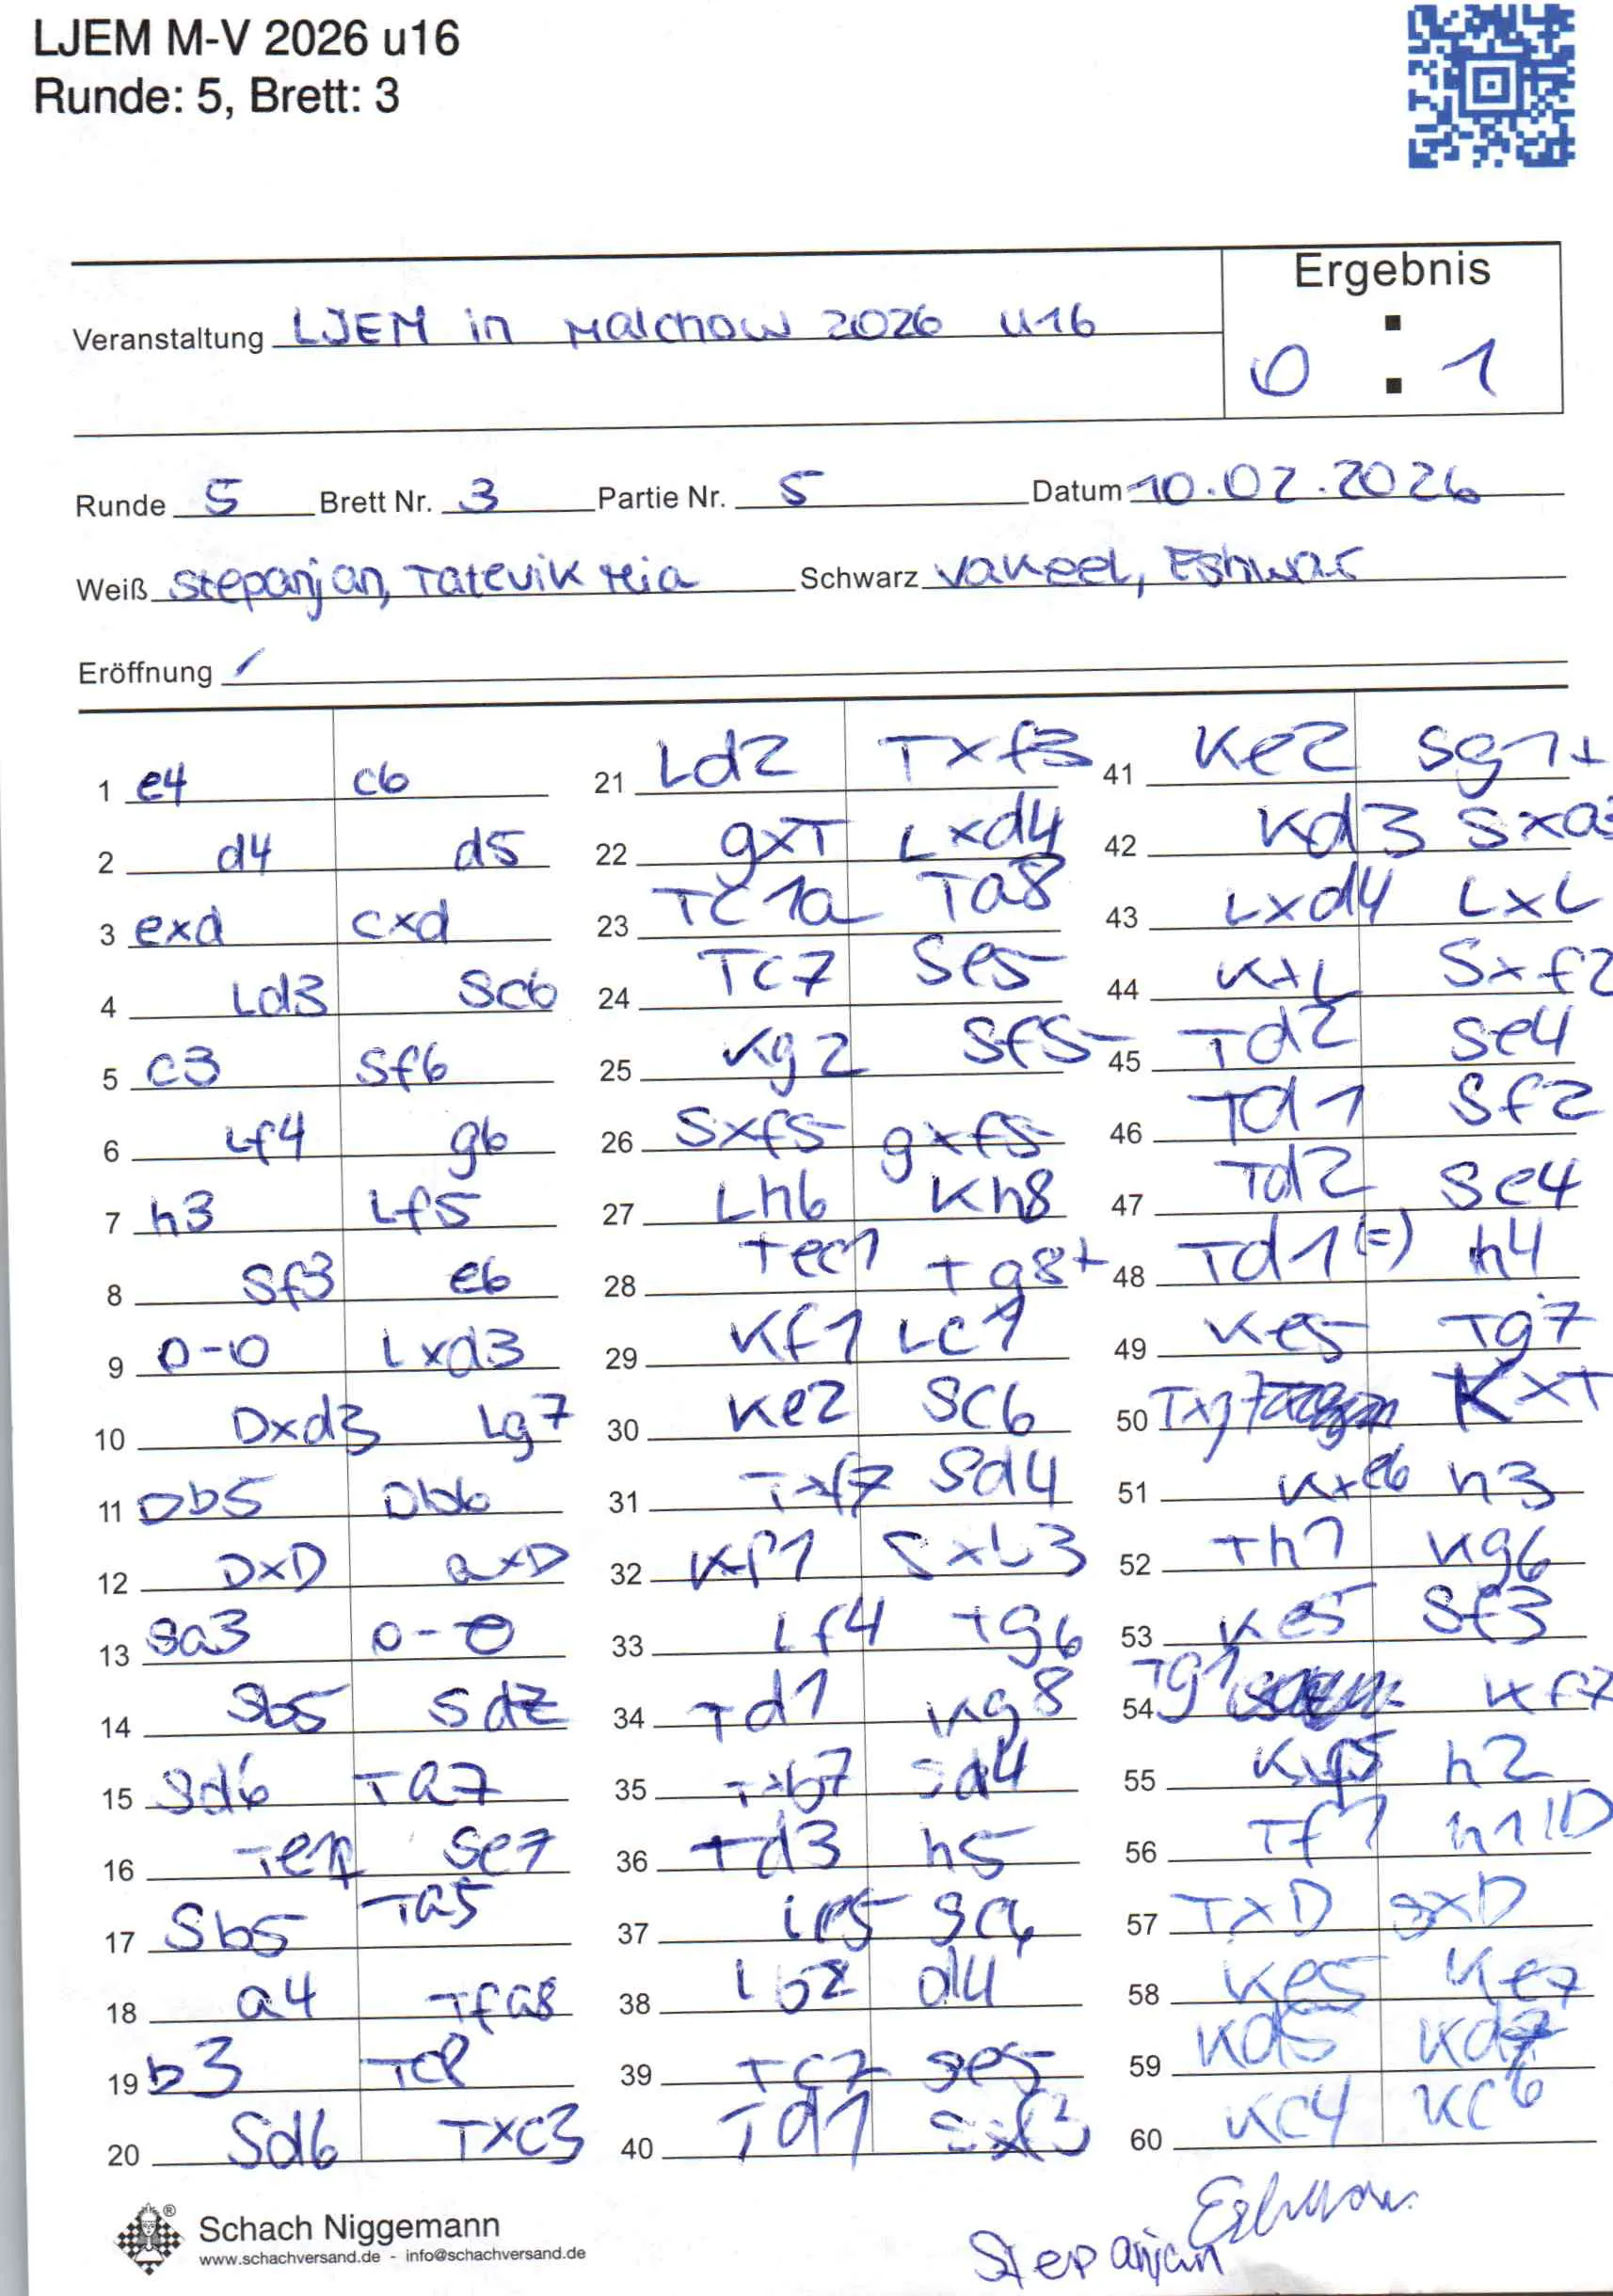 LJEM M-V 2026 u16
Runde: 5, Brett: 3
Ergebnis
Veranstaltung LJEM in Malchow 2026 u16
0 : 1
Runde 5 Brett Nr. 3 Partie Nr. 5 Datum 10.02.2026
Weiß Stepanjan, Tatevik Meia Schwarz Vakeel, Eshwar
Eröffnung /
1 e4 c6
2 d4 d5
3 exd cxd
4 Ld3 Sc6
5 c3 Sf6
6 Lf4 g6
7 h3 Lf5
8 Sf3 e6
9 0-0 Lxd3
10 Dxd3 Lg7
11 Db5 Db6
12 DxD axD
13 Sa3 0-0
14 Sb5 Sd7
15 Sd6 Ta7
16 Te1 Se7
17 Sb5 Ta5
18 a4 Tfa8
19 b3 Tc8
20 Sd6 Txc3
21 Ld2 Txf3
22 gxT Lxd4
23 Tc1a Ta8
24 Tc7 Se5
25 Kg2 Sf5
26 Sxf5 gxf5
27 Lh6 Kh8
28 Tec1 Tg8+
29 Kf1 Lc1
30 Ke2 Sc6
31 Txf7 Sd4
32 Kf1 Sxb3
33 Lf4 Tg6
34 Td1 Kg8
35 Txb7 Sd4
36 Td3 h5
37 Le5 Sc6
38 Lb2 d4
39 Tc7 Se5
40 Td1 Sxf3
41 Ke2 Sg1+
42 Kd3 Sxa3
43 Lxd4 LxL
44 KxL Sxf2
45 Td2 Se4
46 Td1 Sf2
47 Td2 Se4
48 Td1(=) h4
49 Ke5 Tg7
50 Txg7 KxT
51 Kxe6 h3
52 Th1 Kg6
53 Ke5 Sf3
54 Tg1 Kf7
55 Kxf5 h2
56 Tf1 h1D
57 TxD SxD
58 Ke5 Ke7
59 Kd5 Kd7
60 Kc4 Kc6
Schach Niggemann
www.schachversand.de - info@schachversand.de
Stepanjan Eshwar